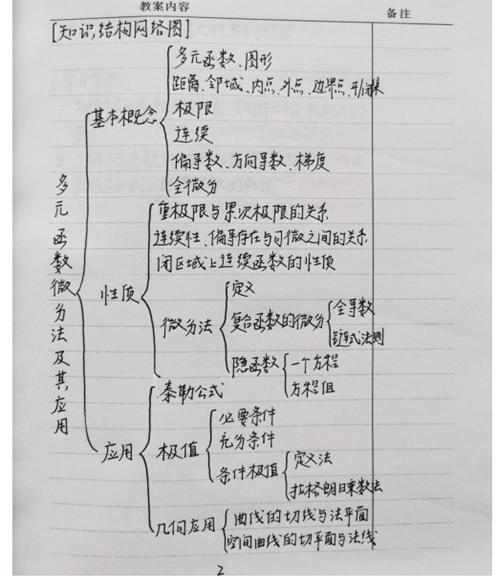 教案内容 备注
[知识结构网络图]
多元函数微分法及其应用
基本概念
多元函数、图形
距离、邻域、内点、外点、边界点、开/闭集
极限
连续
偏导数、方向导数、梯度
全微分
性质
重极限与累次极限的关系
连续性、偏导存在与可微之间的关系
闭区域上连续函数的性质
微分法
定义
复合函数的微分
全导数
链式法则
隐函数
一个方程
方程组
应用
泰勒公式
极值
必要条件
充分条件
条件极值
定义法
拉格朗日乘数法
几何应用
曲线的切线与法平面
空间曲线的切平面与法线
2